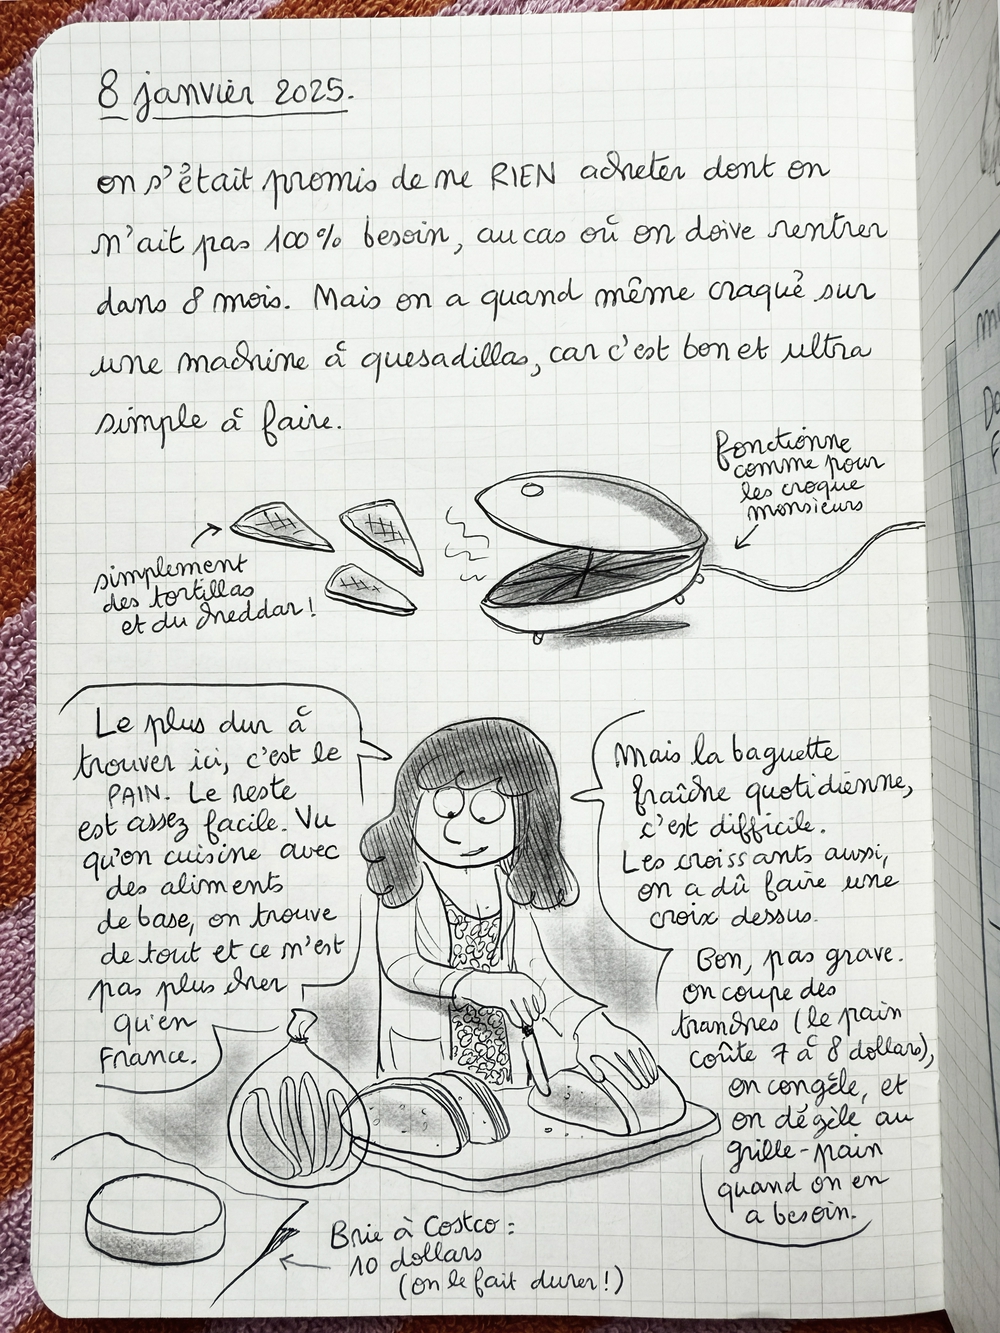 8 janvier 2025.
on s'était promis de ne RIEN acheter dont on
n'ait pas 100% besoin, au cas où on doive rentrer
dans 8 mois. Mais on a quand même craqué sur
une machine à quesadillas, car c'est bon et ultra
simple à faire.
fonctionne
comme pour
les croque
monsieurs
simplement
des tortillas
et du cheddar !
Le plus dur à
trouver ici, c'est le
PAIN. Le reste
est assez facile. Vu
qu'on cuisine avec
des aliments
de base, on trouve
de tout et ce n'est
pas plus cher
qu'en
France.
Mais la baguette
fraîche quotidienne,
c'est difficile.
Les croissants aussi,
on a dû faire une
croix dessus.
Bon, pas grave.
on coupe des
tranches (le pain
coûte 7 à 8 dollars),
on congèle, et
on dégèle au
grille-pain
quand on en
a besoin.
Brie à Costco :
10 dollars
(on le fait durer !)